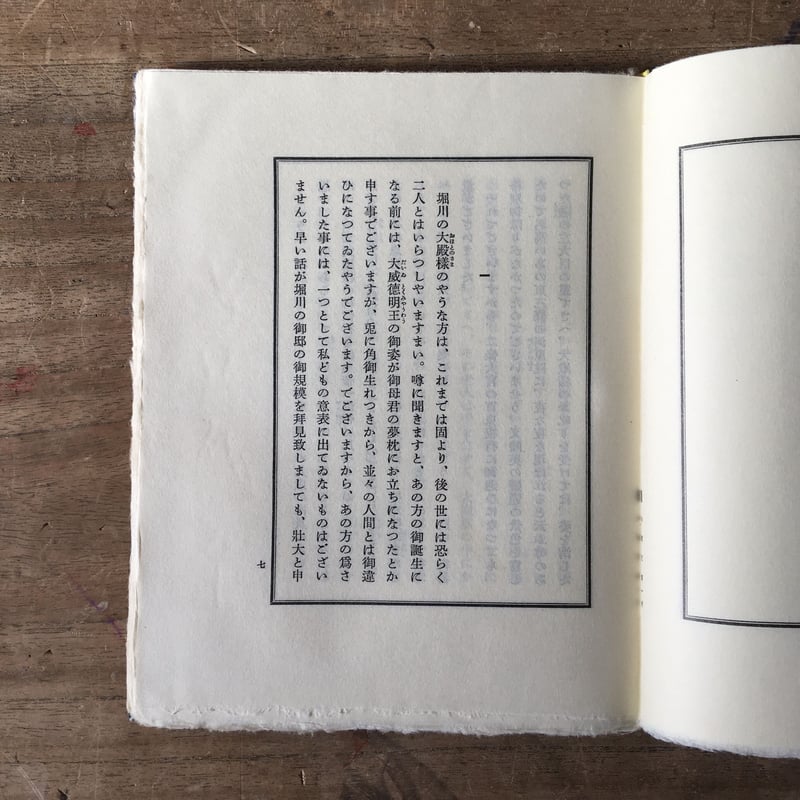 一
堀川の大殿樣のやうな方は、これまでは固より、後の世には恐らく
二人とはいらつしやいますまい。噂に聞きますと、あの方の御誕生に
なる前には、大威德明王の御姿が御母君の夢枕にお立ちになつたとか
申す事でございますが、兎に角御生れつきから、並々の人間とは御違
ひになつてゐたやうでございます。でございますから、あの方の爲さ
いました事には、一つとして私どもの意表に出てゐないものはござい
ません。早い話が堀川の御邸の御規模を拜見致しましても、壯大と申
七